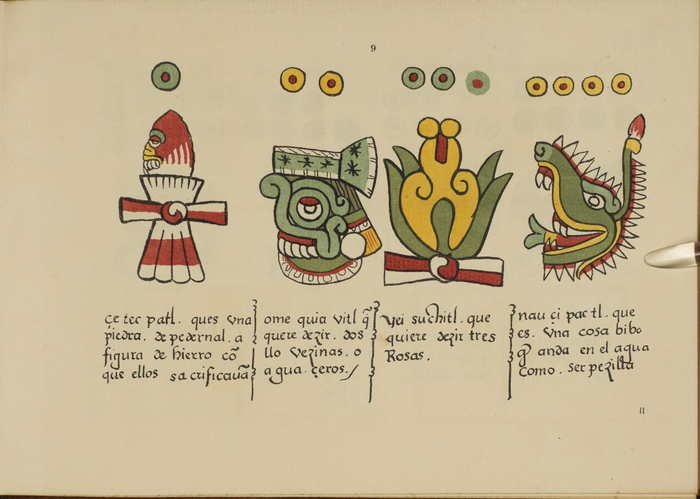 9
çe tec patl. ques vna
piedra. de pedernal. a
figura de hierro cõ
que ellos sacrificauã
ome quia vitl q̃
quere dezir. dos
llo vezinas. o
agua. çeros.
Yei suchitl. que
quiere dezir tres
Rosas.
nau çi pac tl. que
es. vna cosa biba
q̃ anda en el agua
como. ser pezilla
11